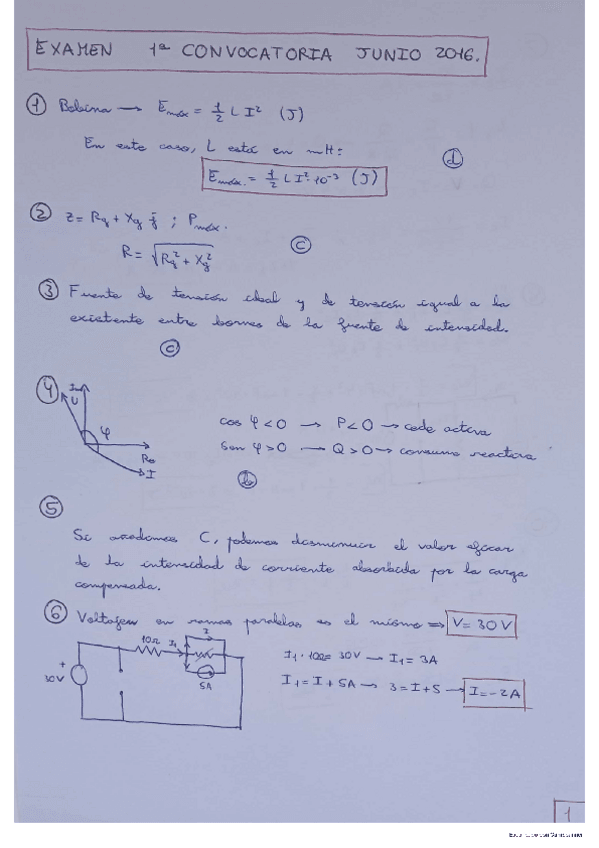 EXAMEN 1ª CONVOCATORIA JUNIO 2016.
① Bobina → Emáx = 1/2 L I² (J)
En este caso, L está en mH:
Emáx. = 1/2 L I²·10⁻³ (J)
ⓓ
② z = Rg + Xg j ; Pmáx.
R = √(Rg² + Xg²)
ⓒ
③ Fuente de tensión ideal y de tensión igual a la
existente entre bornes de la fuente de intensidad.
ⓒ
④
Im
U
φ
Re
I
cos φ < 0 → P < 0 → cede activa
sen φ > 0 → Q > 0 → consume reactiva
ⓑ
⑤
Si añadimos C, podemos disminuir el valor eficaz
de la intensidad de corriente absorbida por la carga
compensada.
⑥ Voltajes en ramas paralelas es el mismo ⇒ V = 30V
10Ω I₁ I
+
30V
5A
I₁ · 10Ω = 30V → I₁ = 3A
I₁ = I + 5A → 3 = I + 5 → I = -2A
1